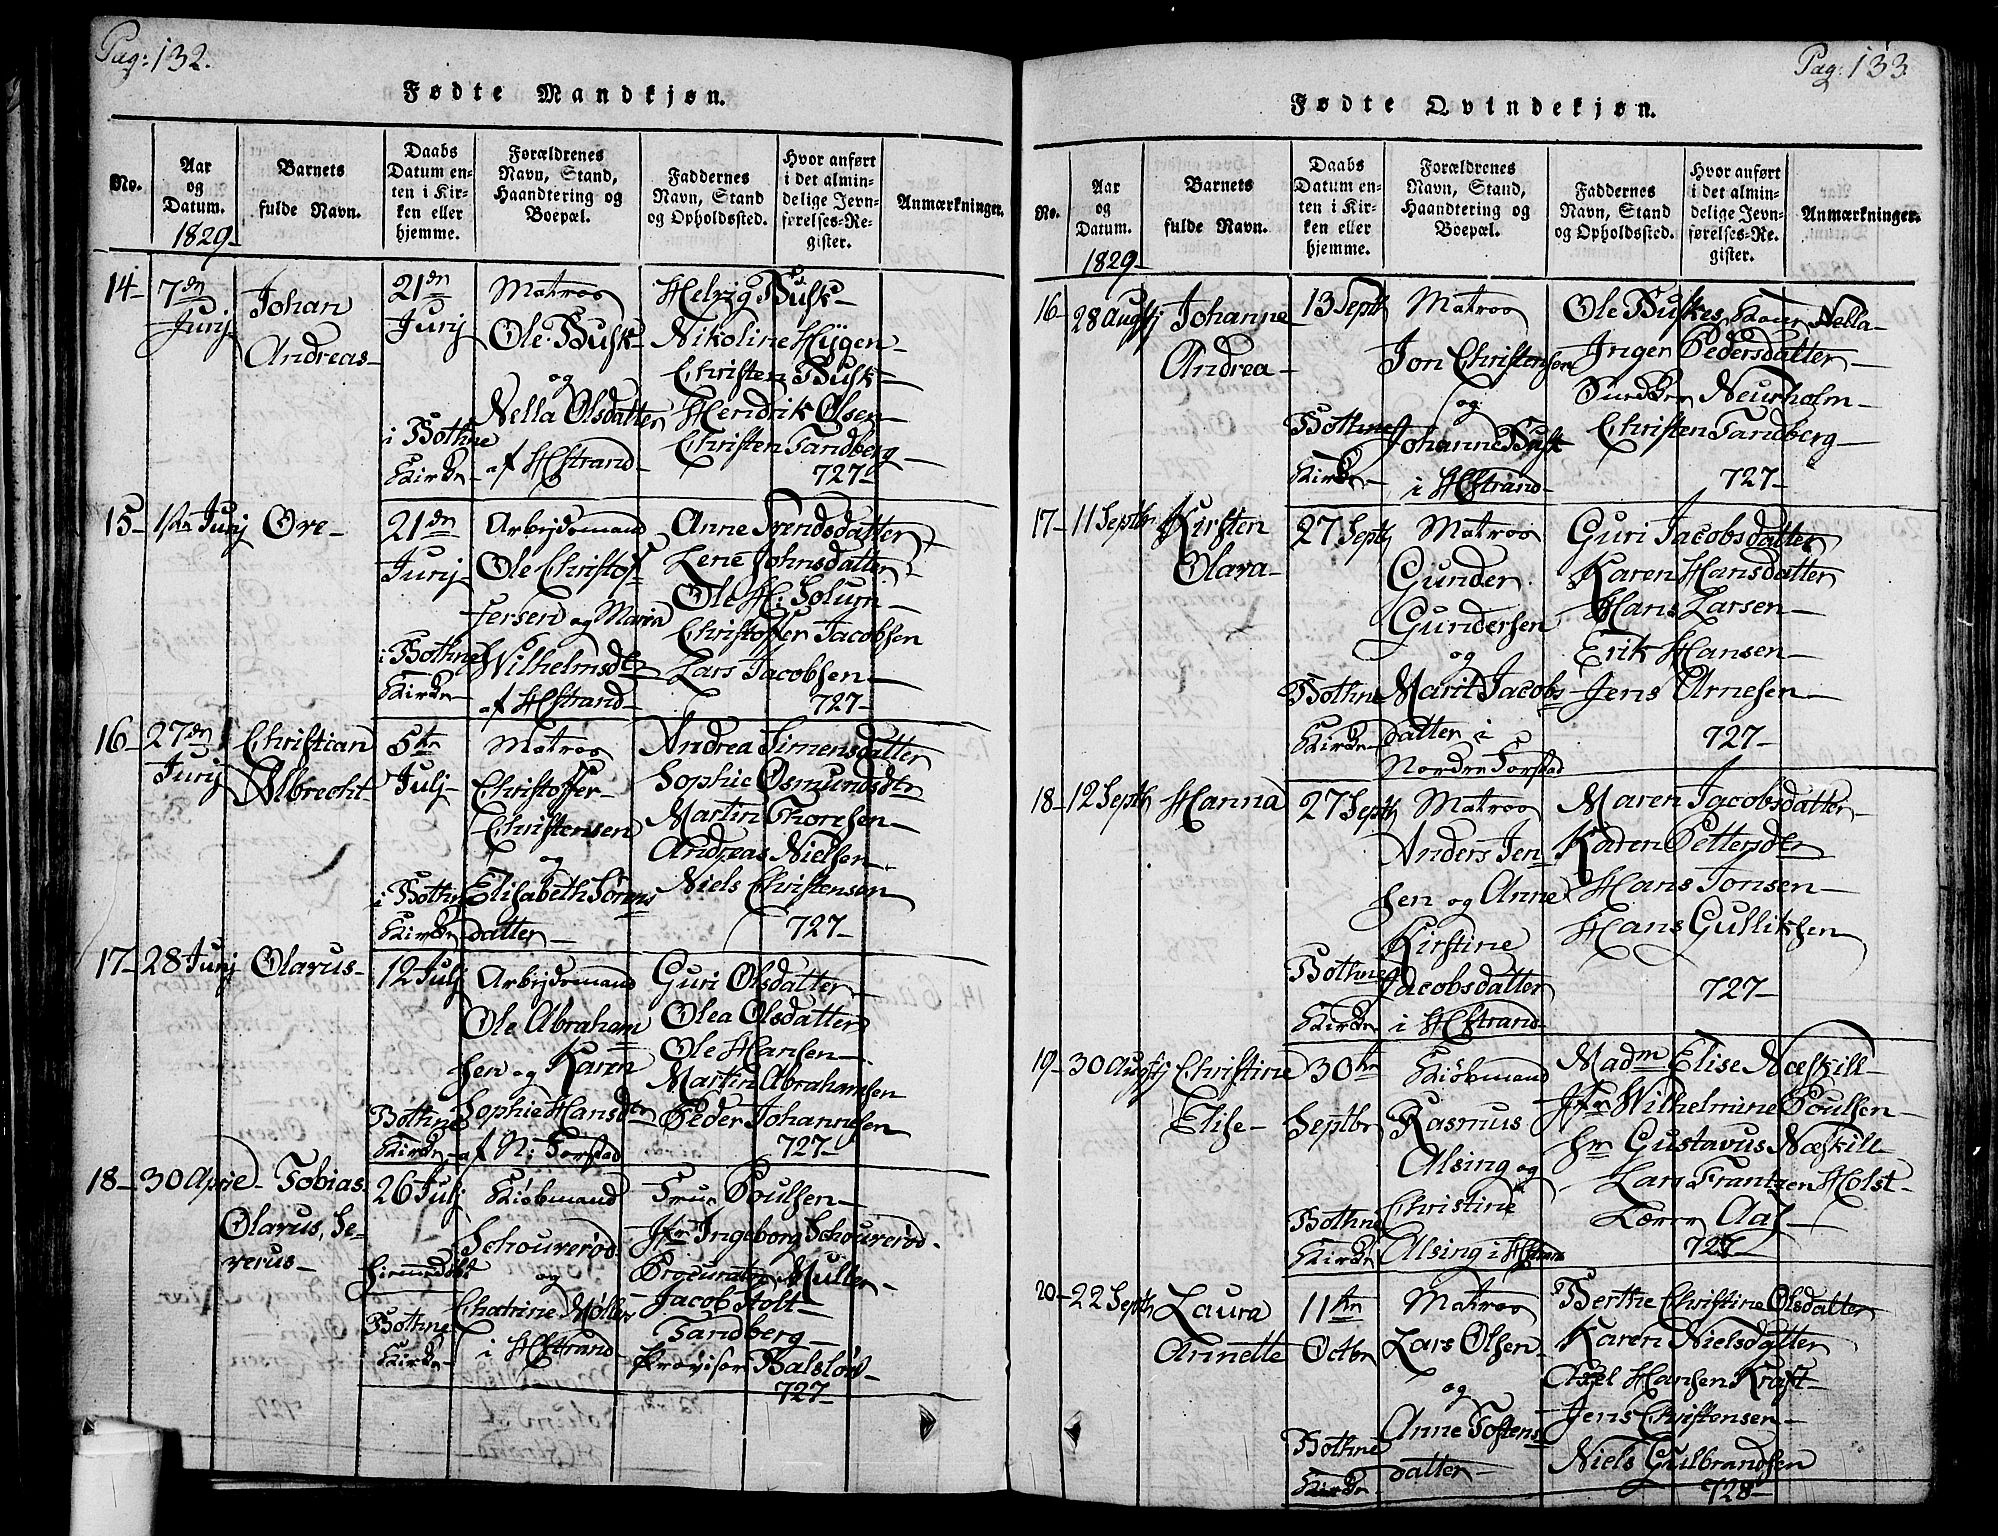 Pag: 132.
Fødte Mandkjøn.
No.
Aar
og
Datum.
1829-
Barnets
fulde Navn.
Daabs
Datum en-
ten i Kir-
ken eller
hjemme.
Forældrenes
Navn, Stand,
Haandtering og
Boepæl.
Faddernes
Navn, Stand
og Opholdssted.
Hvor anført
i det almin-
delige Jevn-
førelses-Re-
gister.
Anmærkninger.
14-
7de
Junj
Johan
Andreas-
21de
Junj
i Bothne
Kirke-
Matros
Ole Busk
og
Nella Olsdatter
af HEstrand-
Helvig Busk-
Nikoline Hygen-
Christen Busk-
Hendrik Olsen-
Christen Sandberg-
727-
15-
1ste Junj
Ove-
21de
Junj
i Bothne
Kirke-
Arbejdsmand
Ole Christof-
fersen og Maria
Wilhelmsdtr
af HEstrand-
Anne Svendsdatter
Lene Johnsdatter
Ole H: Solum-
Christoffer Jacobsen
Lars Jacobsen-
727-
16-
27de
Junj
Christian
Albrecht-
5te
Julj
i Bothne
Kirke
Matros
Christoffer
Christensen
og
Elisabeth Sørens
datter-
Andrea Simensdatter
Sophie Osmundsdtr
Martin Thoresen-
Andreas Nielsen-
Niels Christensen
727-
17-
28 Junj
Olavus-
12 Julj
Bothne
Kirke-
Arbejdsmand
Ole Abraham
sen og Karen
Sophie Hansdtr
af N: Forstad
Guri Olsdatter-
Olea Olsdatter
Ole Hansen-
Martin Abrahamsen
Peder Johannesen
727-
18-
30 April-
Tobias
Olavus, Se-
verus-
26 Julj
Hjemmedøbt
Bothne
Kirke-
Kiøbmand
Schouverød
og
Chatrine Møller
i HEstrand-
Frue Poulsen-
Jfr Ingeborg Schouverød.
Procurator Muller-
Jacob Holt-
Sandberg-
Provisor Balsløv-
727-
Pag: 133.
Fødte Qvindekjøn.
No.
Aar
og
Datum.
1829-
Barnets
fulde Navn.
Daabs
Datum en-
ten i Kir-
ken eller
hjemme.
Forældrenes
Navn, Stand,
Haandtering og
Boepæl.
Faddernes
Navn, Stand
og Opholdssted.
Hvor anført
i det almin-
delige Jevn-
førelses-Re-
gister.
Anmærkninger.
16-
28 Augstj
Johanne
Andrea-
13 Septb
Bothne
Kirke-
Matros
Jon Christensen
og
Johanne Busk
i HEstrand-
Ole Buskes Kone Nella-
Inger Pedersdatter-
Neurholm-
Christen Sandberg-
727-
17-
11 Septbr
Kirsten
Olava-
27 Septb
Bothne
Kirke-
Matros
Gunder
Gundersen
og
Marit Jacobs
datter i
Nordre Forstad
Guri Jacobsdatter
Karen Hansdatter
Hans Larsen-
Erik Hansen-
Jens Arnesen-
727-
18-
12 Septb
Hanna
27 Septb
Bothne
Kirke-
Matros
Anders Jen
sen og Anne
Kirstine
Jacobsdatter
i HEstrand-
Maren Jacobsdatter-
Karen Pettersdtr
Hans Jonsen-
Hans Gulliksen
727-
19-
30 Augstj
Christine
Elise-
30te
Septbr
Bothne
Kirke-
Kiøbmand
Rasmus
Alsing og
Christine
Alsing i HEstrand
Madm Elise Næskill-
Jfr Wilhelmine Poulsen-
Hr Gustavus Næskill-
Lars Frantzen Holst-
Lærer Aas-
727-
20-
22 Septb
Laura
Annette
11te
Octbr
Bothne
Kirke-
Matros
Lars Olsen-
og
Anne Tostens
datter-
Berthe Christine Olsdatter
Karen Nielsdatter
Axel Hansen Kraft-
Jens Christensen-
Niels Gulbrandsen
728-